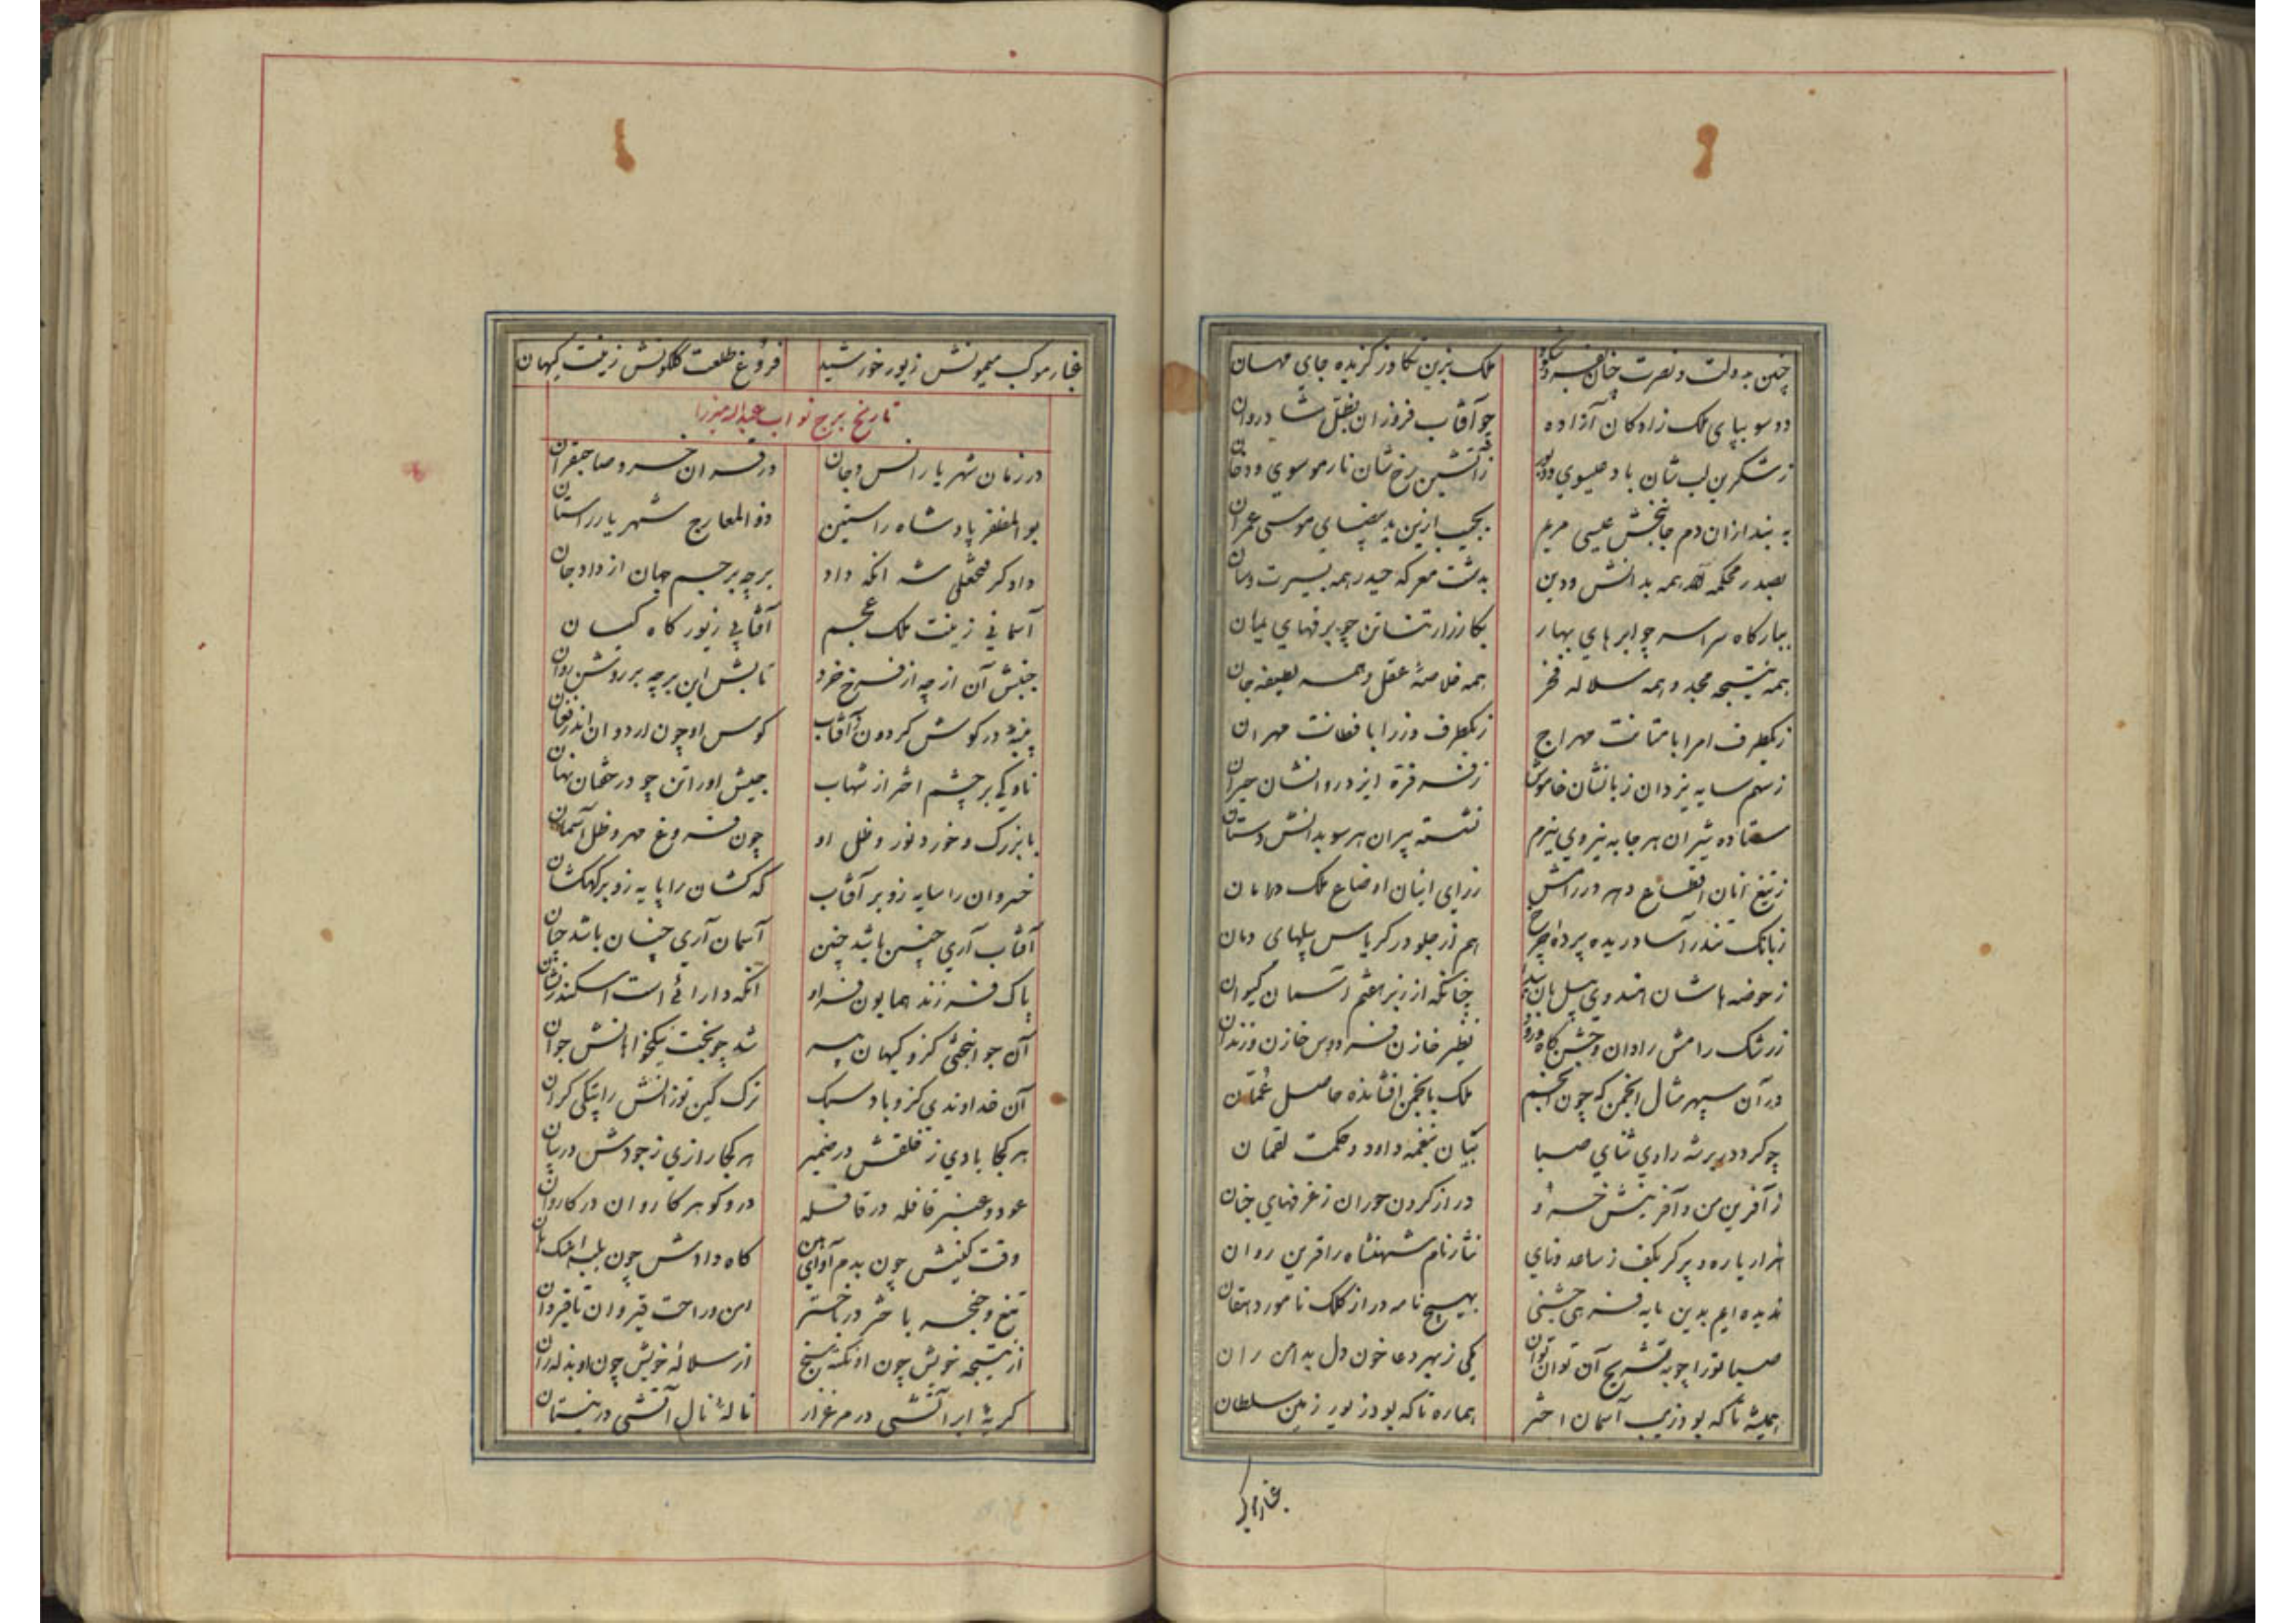 چنین بدولت و نصرت چنان بفر و شکوه ملک بزین تکاور گزیده جای مهان
دو سو بپای ملک زادکان آزاده چو آفتاب فروزان بظل شادروان
ز شکرین لب شان باد عیسوی ز آتشین رخ شان نار موسوی و دخان
به بند ازان دم جانبخش عیسی مریم بجیب ازین ید بیضای موسی عمران
بصدر محکمه همه بدانش و دین بدشت معرکه حیدر همه بسیرت وسان
ببارکاه سراسر چو ابرهای بهار بکارزار تناتن چو برقهای یمان
همه نتیجه مجد و همه سلاله فخر همه خلاصه عقل و همه لطیفه جان
ز یکطرف امرا با متانت مهراج ز یکطرف وزرا با فطانت مهران
ز سهم سایه یزدان زبانشان خاموش ز فره ایزد روانشان حیران
ستاده شیران هر جا به نیروی نیرم نشسته پیران هر سو بدانش دستان
ز تیغ آنان اقطاع دهر در رامش ز رای اینان اوضاع ملک در امان
ز بانک تندر آسا دریده پرده چرخ هم از جلو در کریاس پیلهای دمان
ز حوضه هاشان هندوی پیل بان چنانکه از زبر هفتم آسمان کیوان
ز رشک رامش رادان و جشن کاه نظیر خازن فردوس خازن و زندان
در آن سپهر مثال انجمن که چون انجم ملک بانجمن افشانده حاصل عمان
چو کردد بر شه راوی ثنای صبا بتبیان نغمه داود و حکمت لقمان
ز آفرین من و آفرینش خسرو دراز کردن حوران ز غرفهای جنان
هزار یاره و پرکر بکف ز ساعد و نای نثار نام شهنشاه را قرین روان
ندیده ایم بدین پایه فرهی جشنی بهیچ نامه در از کلک نامور دهقان
صبا تورا چو به تشریح آن توان نتوان یکی ز بهر دعا خون دل بدامن ران
همیشه تا که بود زیب آسمان اختر هماره تا که بود زیور زمین سلطان
غبار موکب
غبار موکب میمونش زیور خورشید فروغ طلعت کلکونش زینت کیهان
تاریخ برج نواب عبدالله میرزا
در زمان شهریار انس و جان در قران خسرو صاحبقران
بوالمظفر پادشاه راستین ذوالمعارج شهریار راستان
دادکر فتحعلی شه انکه داد برچه بر جسم جهان از داد جان
آسمانی زینت ملک عجم آفتابی زیور کاه کیان
جنبش آن از چه از فرخ خرد تابش این برچه بر روشن روان
پنبه در کوش کردون ز آفتاب کوس او چون اردوان اندر فغان
ناوکی بر چشم اختر از شهاب جیش او را تن چو در خفتان نهان
با بزرک و خورد نور و ظل او چون فروغ مهر و ظل آسمان
خسروان را سایه زو بر آفتاب که کشان را پایه زو بر کهکشان
آفتاب آری چنین باشد چنین آسمان آری چنان باشد چنان
پاک فرزند همایون فر او انکه دارائی است اسکندر نشان
آن جوانبختی کزو کیهان پیر شد چو بخت نیکخواهانش جوان
آن خداوندی کزو باد سبک ترک کین توزانش را پتکی کران
هر کجا بادی ز خلقش در ضمیر هر کجا رازی ز جودش در بیان
عود و عنبر قافله در قافله در و کوهر کاروان در کاروان
وقت کینش چون بدم آوای هین کاه دادش چون بلب اهنک هان
تیغ و خنجر باختر در باختر امن و راحت قیروان تا قیروان
از نتیجه خویش چون او نکته سنج از سلاله خویش چون او بذله ران
کریه ابر آتشی در مرغزار ناله نال آتشی در نیستان